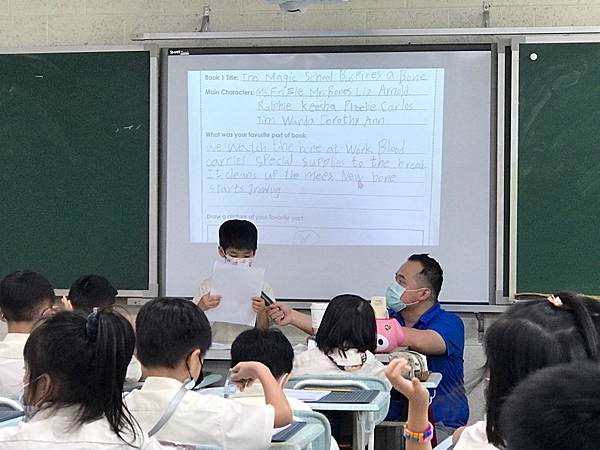 Book 1 Title: The Magic School Bus Fixes a Bone
Main Characters: Ms. Frizzle Mr. Bones Liz Arnold
Ralphie Keesha Phoebe Carlos
Tim Wanda Dorothy Ann
What was your favorite part of book:
we watch the bone at work. Blood
carries special supplies to the break
It cleans up the mees. New bone
starts
Draw a picture of your favorite part: